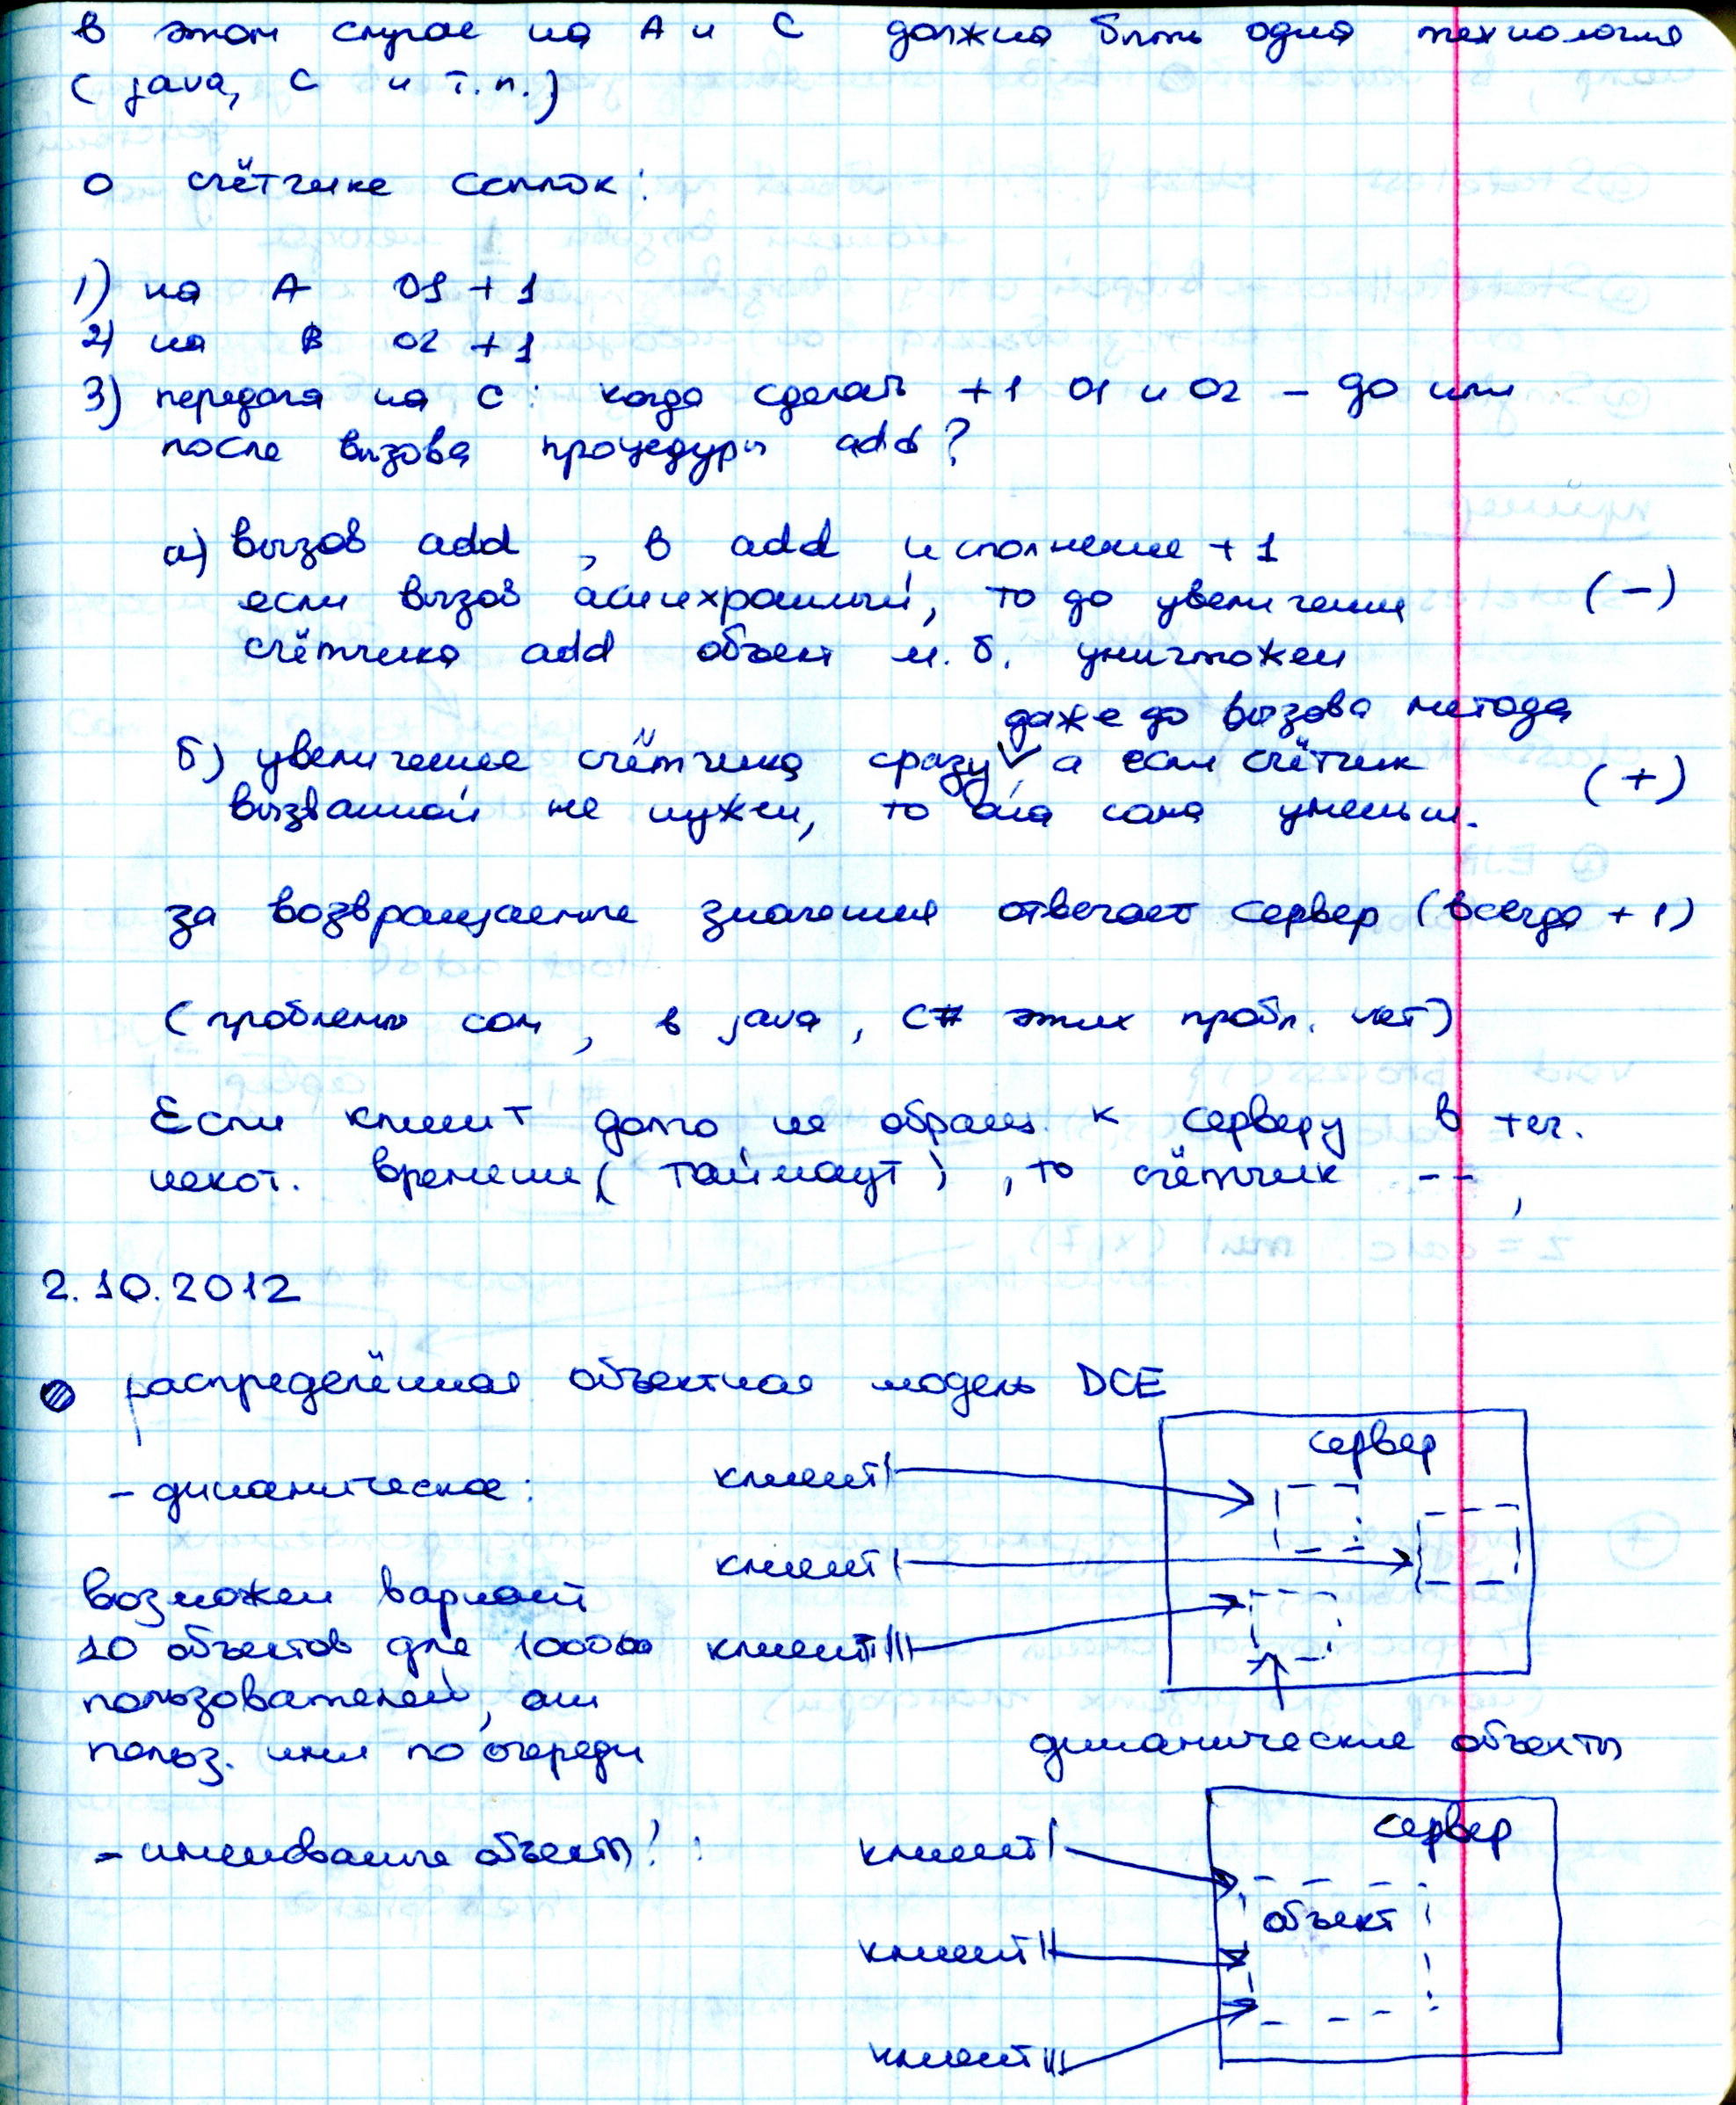 в этом случае на A и C должна быть одна технология
( java, C и т.п.)
о счётчике ссылок:
1) на A O1 + 1
2) на B O2 + 1
3) передача на C: когда сделать +1 O1 и O2 - до или
после вызова процедуры add?
а) вызов add , в add исполнение + 1
если вызов асинхронный, то до увеличения (-)
счётчика add объект м.б. уничтожен
даже до вызова метода
б) увеличение счётчика сразу, а если счётчик (+)
вызванной не нужен, то она сама уменьш.
за возвращаемые значения отвечает сервер (всегда +1)
(проблемы com, в java, C# этих пробл. нет)
Если клиент долго не обращ. к серверу в теч.
некот. времени ( таймаут ) , то счётчик --,
2.10.2012
распределённая объектная модель DCE
- динамическое:
сервер
клиент I
клиент I
возможен вариант
10 объектов для 10000 клиент III
пользователей, они
польз. ими по очереди
динамические объекты
- именованные объекты :
сервер
клиент I
объект
клиент II
клиент III